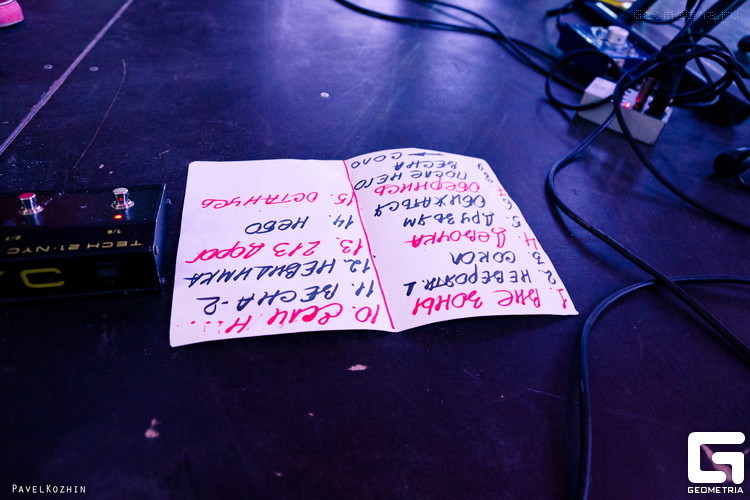 1. ВНЕ ЗОНЫ
2. НЕВЕРОЯТН.
3. СОКОЛ
4. ДЕВОЧКА
5. ДРУЗЬЯМ
6. ОБИЖАТЬСЯ
7. ОБЕРНИСЬ
8. ПОСЛЕ НЕГО
9. ВЕСНА
СОЛО
10. ЕСЛИ Н...
11. ВЕСНА-2
12. НЕВИДИМКА
13. 213 ДОРОГ
14. НЕБО
15. ОСТАНУСЬ
TECH 21·NYC
Geometria.ru
PAVELKOZHIN
GEOMETRIA